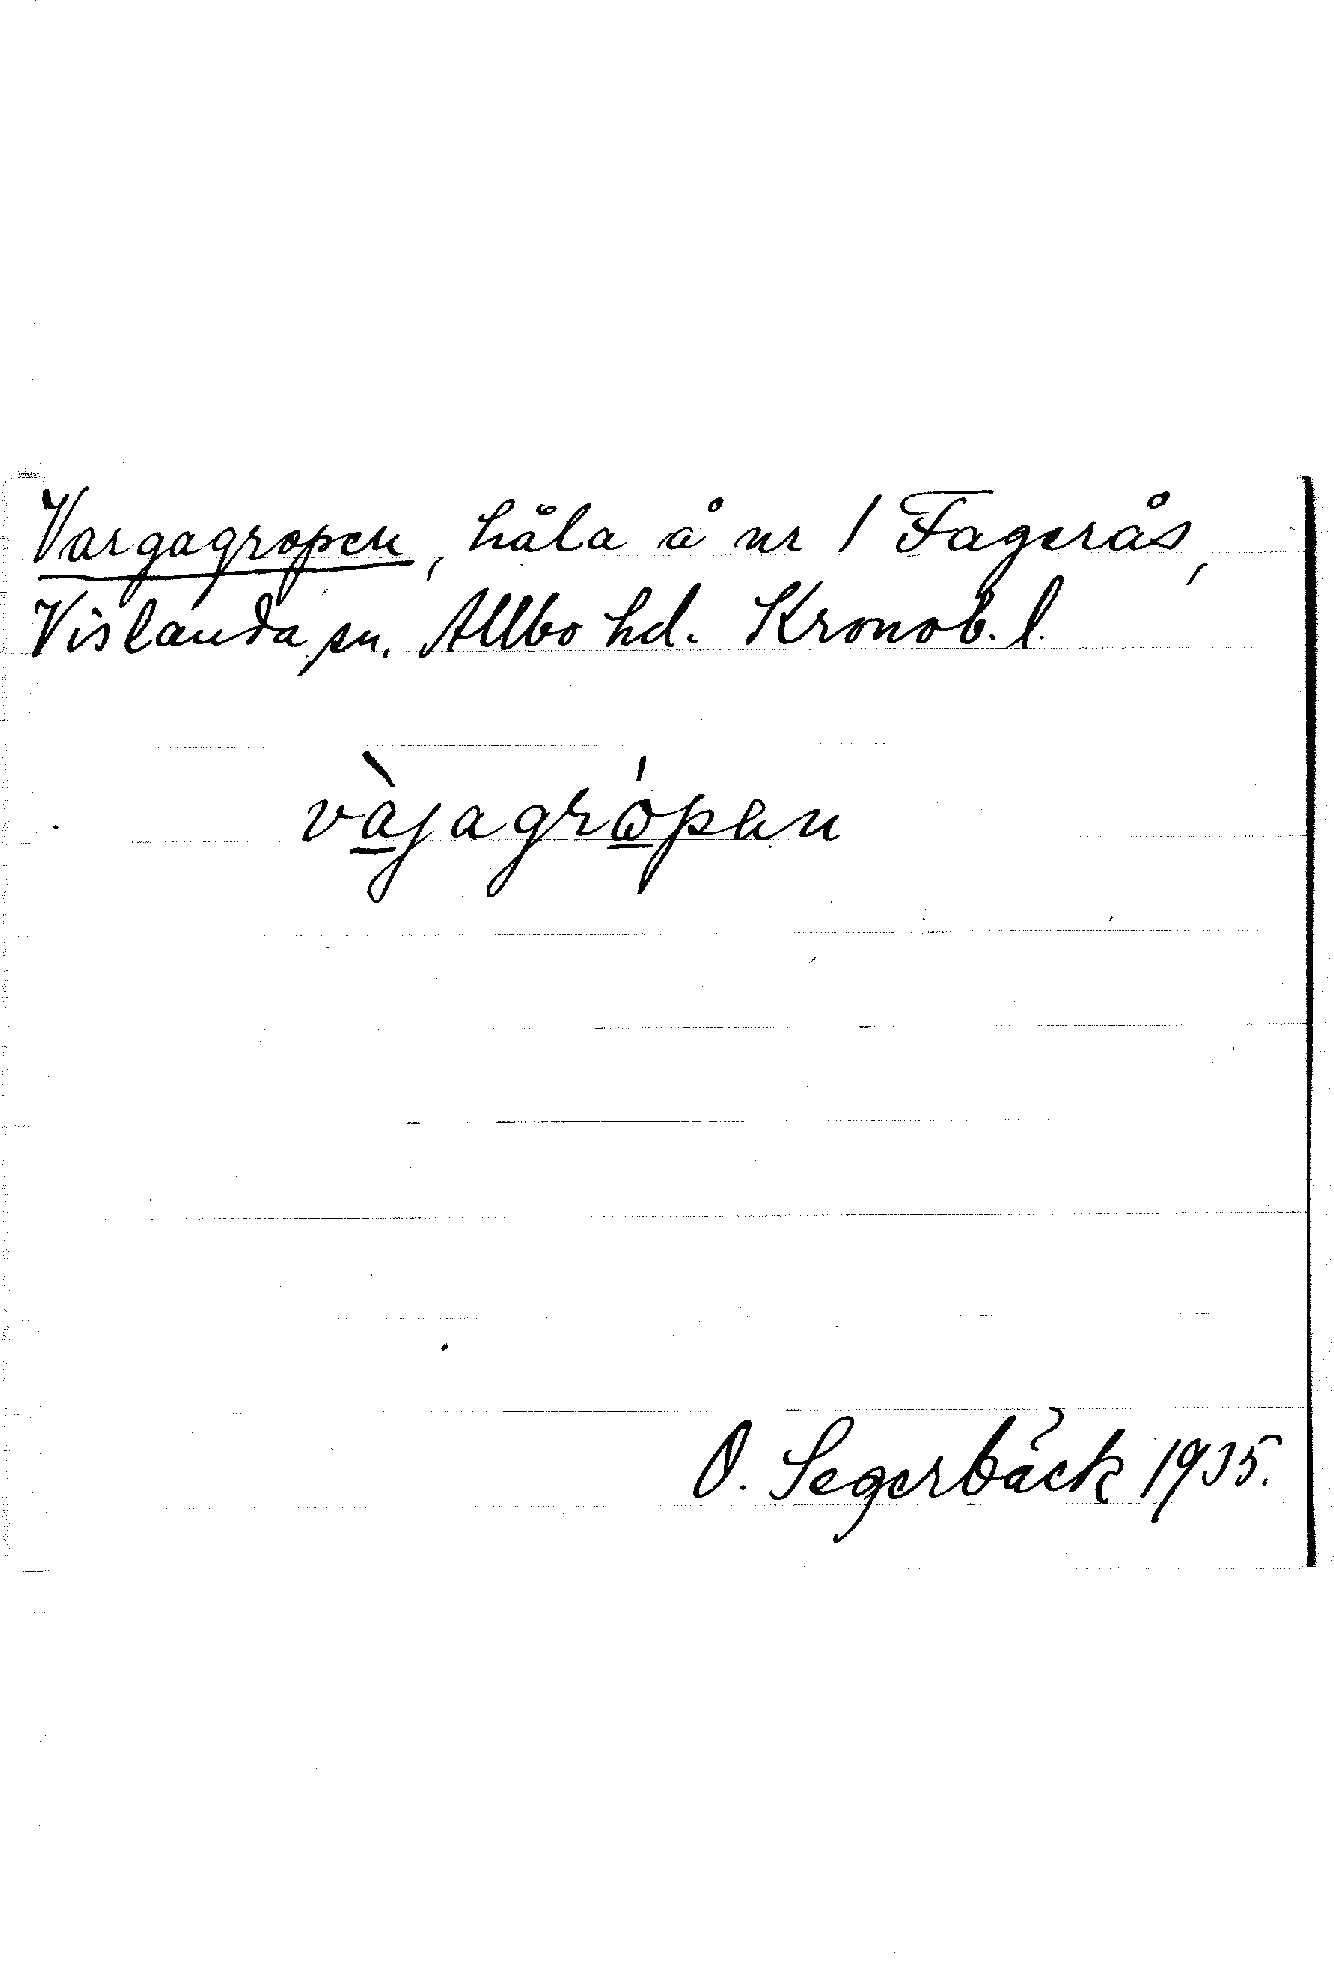 Vargagropen, håla å nr 1 Fagerås,
Vislanda sn. Allbo hd. Kronob. l.
vàjagrópen
O. Segerbäck 1935.